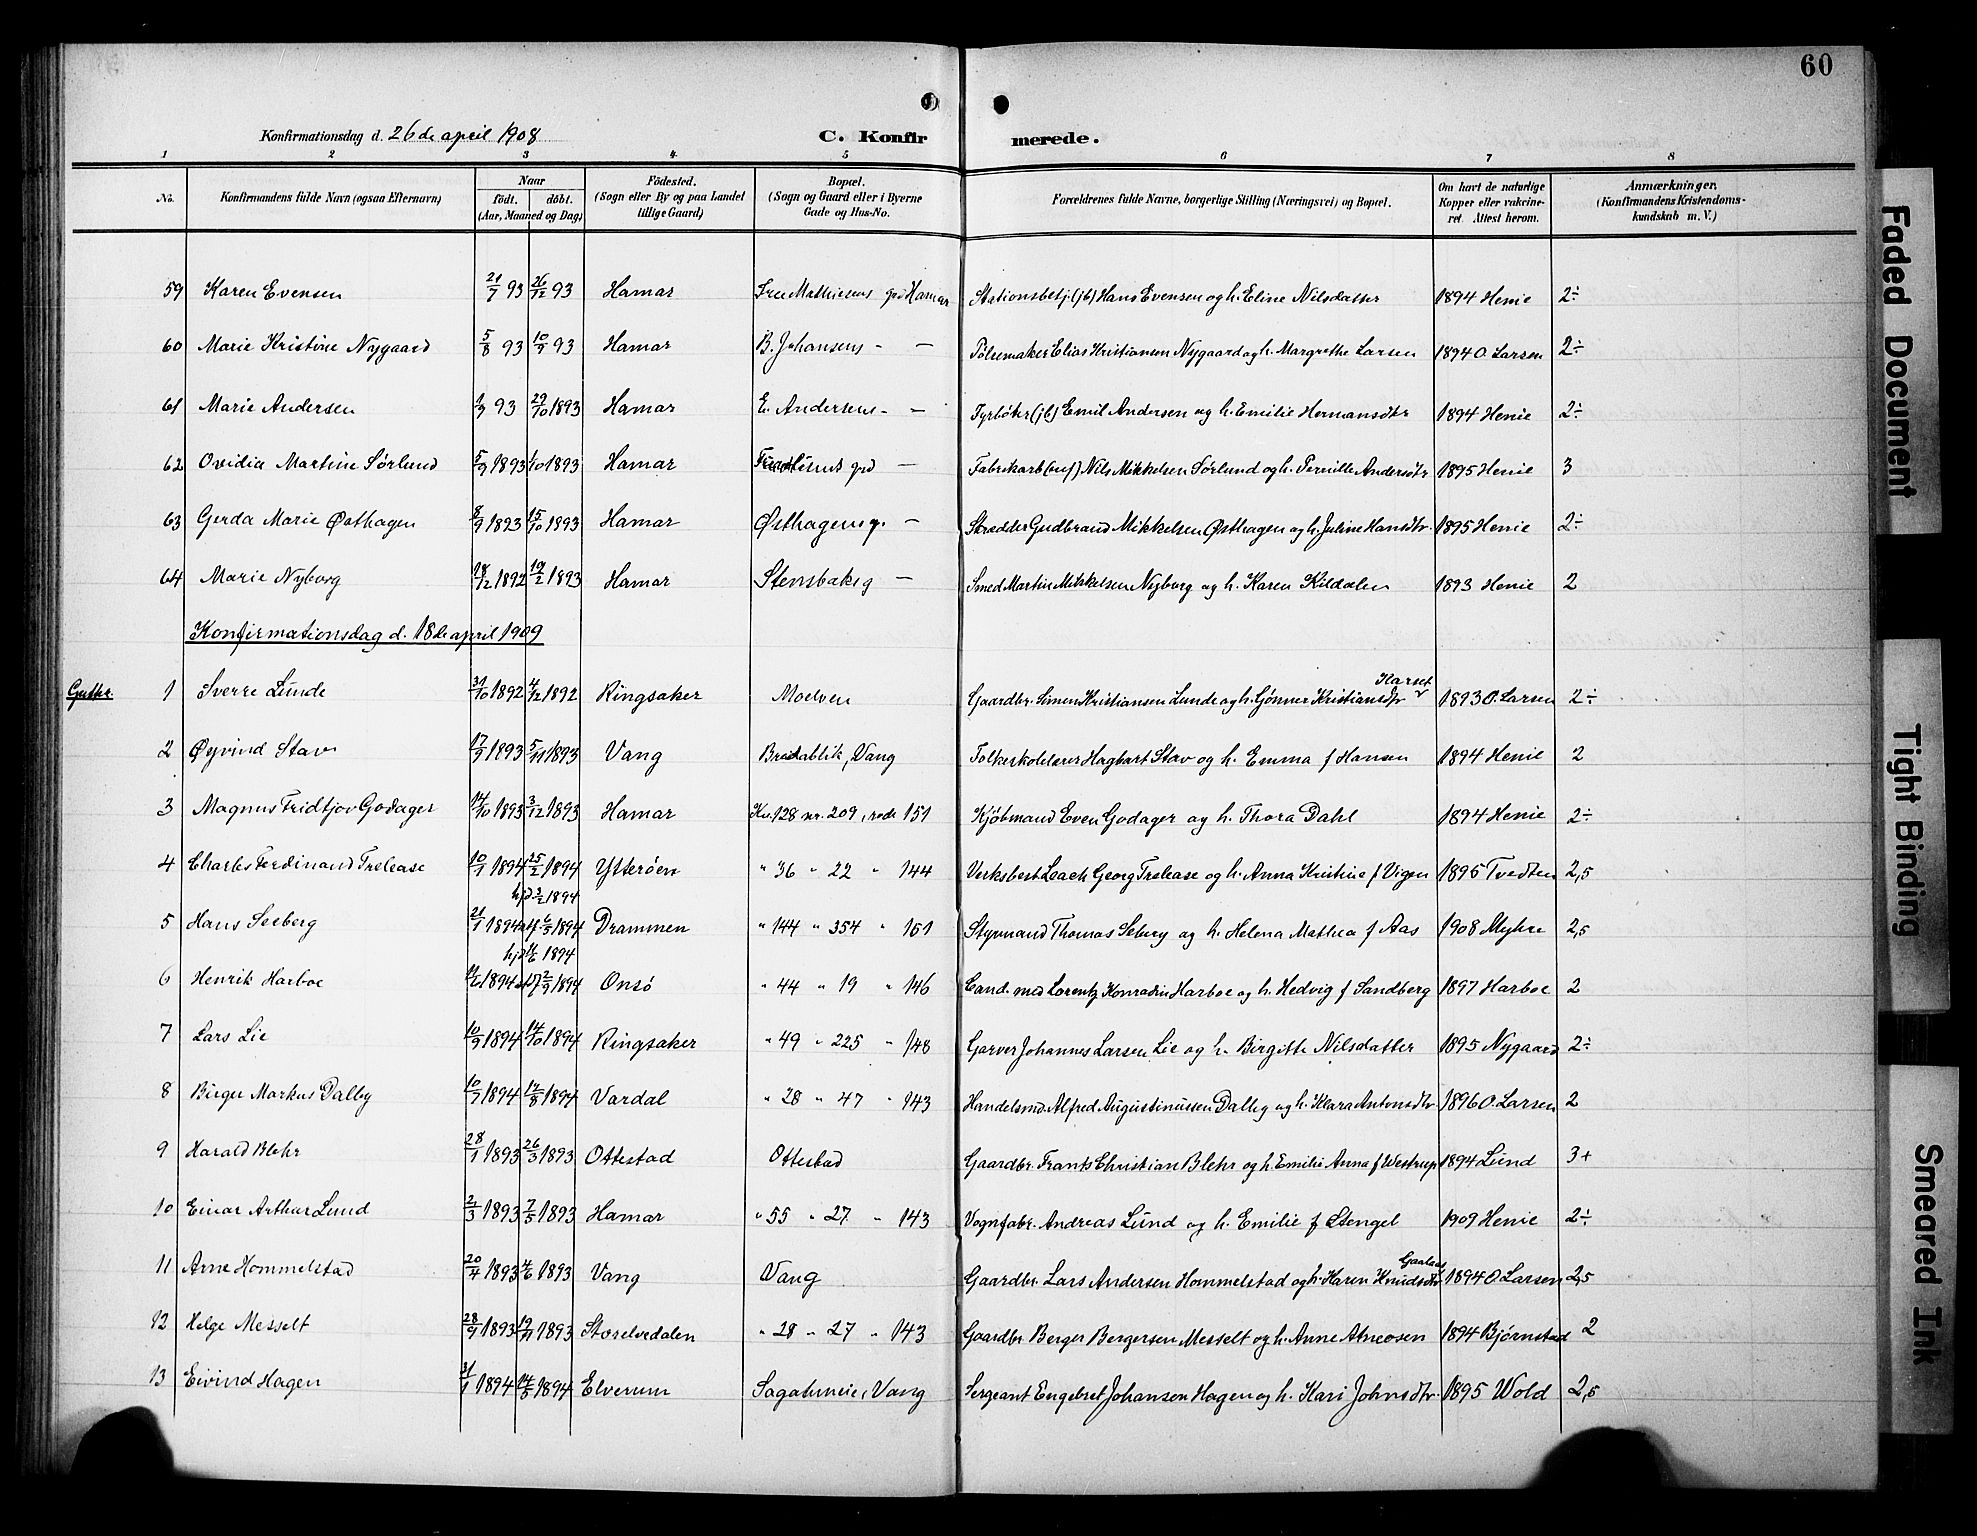 60
Konfirmationsdag d. 26de april 1908
C. Konfirmerede.
1 2 3 4 5 6 7 8
No. Konfirmandens fulde Navn (ogsaa Efternavn) Naar født. døbt. (Aar, Maaned og Dag) Fødested. (Sogn eller By og paa Landet tillige Gaard) Bopæl. (Sogn og Gaard eller i Byerne Gade og Hus-No. Forældrenes fulde Navne, borgerlige Stilling (Næringsvei) og Bopæl. Om havt de naturlige Kopper eller vakcineret. Attest herom. Anmærkninger. (Konfirmandens Kristendomskundskab m. V.)
59 Karen Evensen 21/7 93 26/12 93 Hamar Fru Mathiesens gd Hamar Stationsbetj. (jb) Hans Evensen og h. Eline Nilsdatter 1894 Henie 2÷
60 Marie Kristine Nygaard 5/8 93 10/9 93 Hamar B. Johansens - — Pølsemaker Elias Kristiansen Nygaard og h. Margrethe Larsen 1894 O. Larsen 2÷
61 Marie Andersen 93 29/10 1893 Hamar E. Andersens - — Fyrbøter (jb) Emil Andersen og h. Emilie Hermansdtr 1894 Henie 2÷
62 Ovidia Martine Sørlund 5/9 1893 1/10 1893 Hamar gd — Fabrikarb Nils Mikkelsen Sørlund og h. Pernille Andersdtr 1895 Henie 3
63 Gerda Marie Østhagen 8/9 1893 15/10 1893 Hamar Østhagens g. — Skrædder Gudbrand Mikkelsen Østhagen og h. Juline Hansdtr. 1895 Henie 2÷
64 Marie Nyborg 18/12 1892 19/2 1893 Hamar Stensbaks g — Smed Martin Mikkelsen Nyborg og h. Karen Kildalen 1893 Henie 2
Konfirmationsdag d. 18de april 1909
Gutter. 1 Sverre Lunde 31/10 1892 4/12 1892 Ringsaker Moelven Gaardbr. Simen Kristiansen Lunde og h. Gjønner Kristiansdtr Harset 1893 O. Larsen 2÷
2 Øyvind Stav 17/9 1893 5/11 1893 Vang Breidablik, Vang Folkeskolelærer Hagbart Stav og h. Emma f Hansen 1894 Henie 2
3 Magnus Fridtjov Godager 14/10 1893 3/12 1893 Hamar Kv. 128 nr. 209, rode 151 Kjøbmand Even Godager og h. Thora Dahl 1894 Henie 2÷
4 Charles Ferdinand Trelease 10/1 1894 25/2 1894 Ytterøen " 36 " 22 " 144 Verksbest Leach Georg Trelease og h. Anna Kristine f Vigen 1895 Tvedten 2,5
5 Hans Seeberg 21/1 1894 hjd. 2/2 1894 st. 6/5 1894 Drammen " 144 " 354 " 161 Styrmand Thomas Seberg og h. Helena Mathea f Aas 1908 Myhre 2,5
6 Henrik Harboe 11/6 1894 hjd 11/6 1894 st. 2/9 1894 Onsø " 44 " 19 " 146 Cand. med Lorentz Konradin Harboe og h. Hedvig f Sandberg 1897 Harboe 2
7 Lars Lie 10/9 1894 14/10 1894 Ringsaker " 49 " 225 " 148 Garver Johannes Larsen Lie og h. Birgitte Nilsdatter 1895 Nygaard 2÷
8 Birger Markus Dalby 10/7 1894 12/8 1894 Vardal " 28 " 47 " 143 Handelsmd Alfred Augustinussen Dalby og h. Klara Antonsdtr. 1896 O. Larsen 2
9 Harald Blehr 28/1 1893 26/3 1893 Ottestad Ottestad Gaardbr. Frants Christian Blehr og h. Emilie Anna f Westrup 1894 Lund 3+
10 Einar Arthur Lund 2/3 1893 7/5 1893 Hamar " 55 " 27 " 143 Vognfabr. Andreas Lund og h. Emilie f Stengel 1909 Henie 2÷
11 Arne Hommelstad 20/4 1893 4/6 1893 Vang Vang Gaardbr. Lars Andersen Hommelstad og h. Karen Knudsdtr Gaalaas 1894 O. Larsen 2,5
12 Helge Messelt 28/9 1893 19/11 1893 Storelvedalen " 28 " 27 " 143 Gaardbr Berger Bergersen Messelt og h. Anne Atneosen 1894 Bjørnstad 2
13 Eivind Hagen 31/1 1894 14/5 1894 Elverum Sagatuneie, Vang Sergeant Engebret Johansen Hagen og h. Kari Johnsdtr. 1895 Wold 2,5
Faded Document
Tight Binding
Smeared Ink